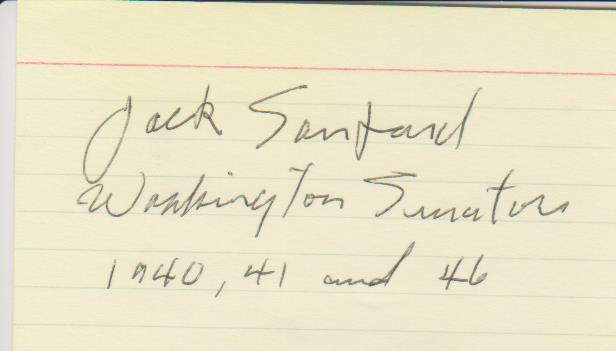 Jack Sanford
Washington Senators
1940, 41 and 46